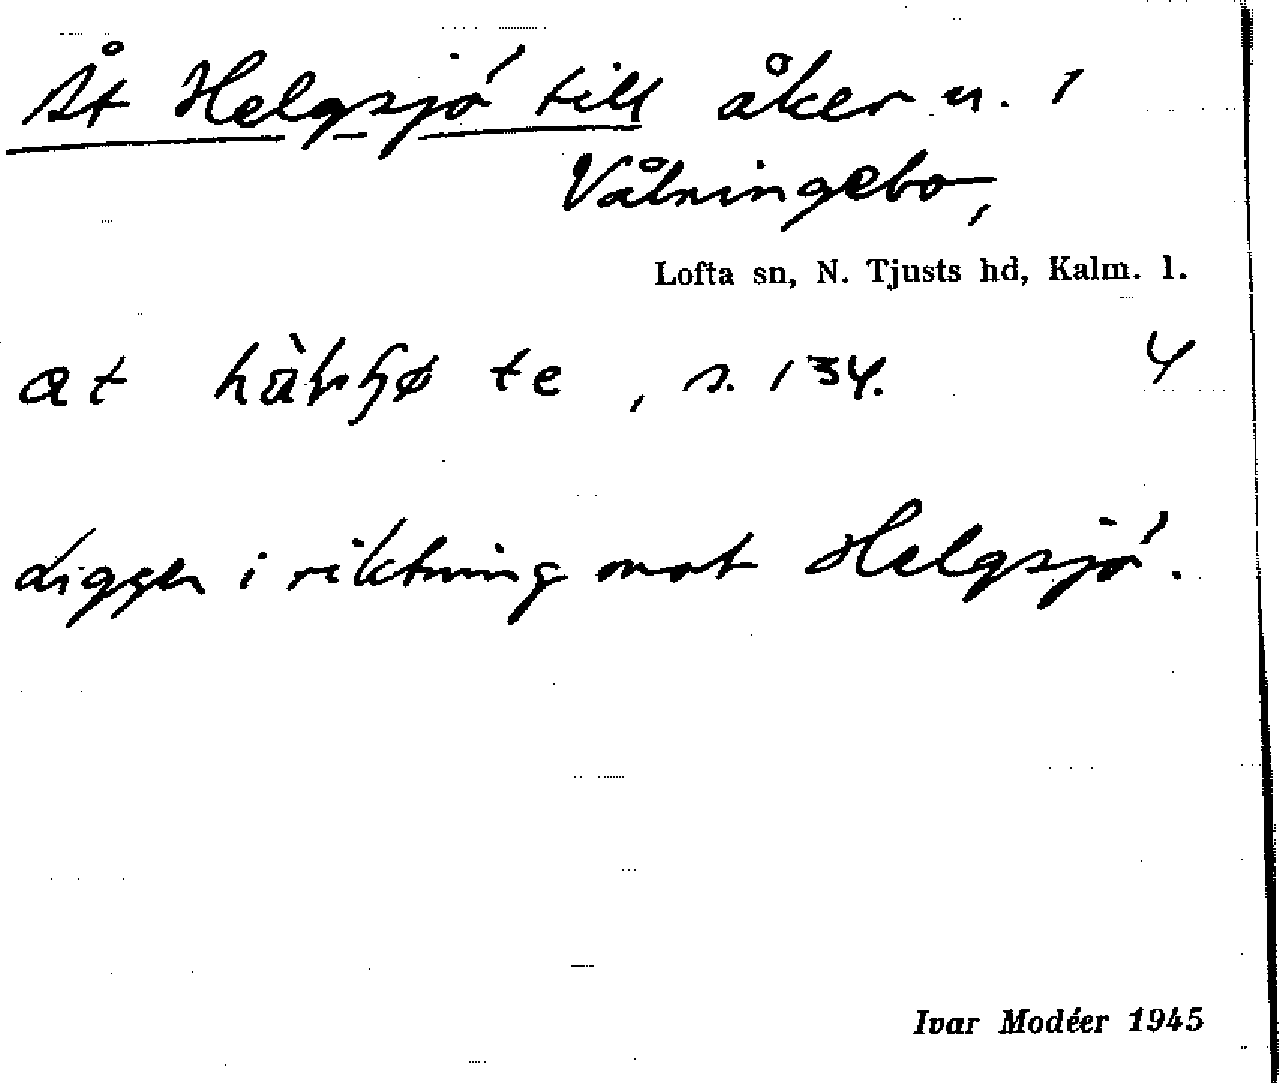 Åt Helgsjö till åker u. 1
Vålningebo,
Lofta sn, N. Tjusts hd, Kalm. l.
at te, s. 134. 4
Ligger i riktning mot Helgsjö.
Ivar Modéer 1945